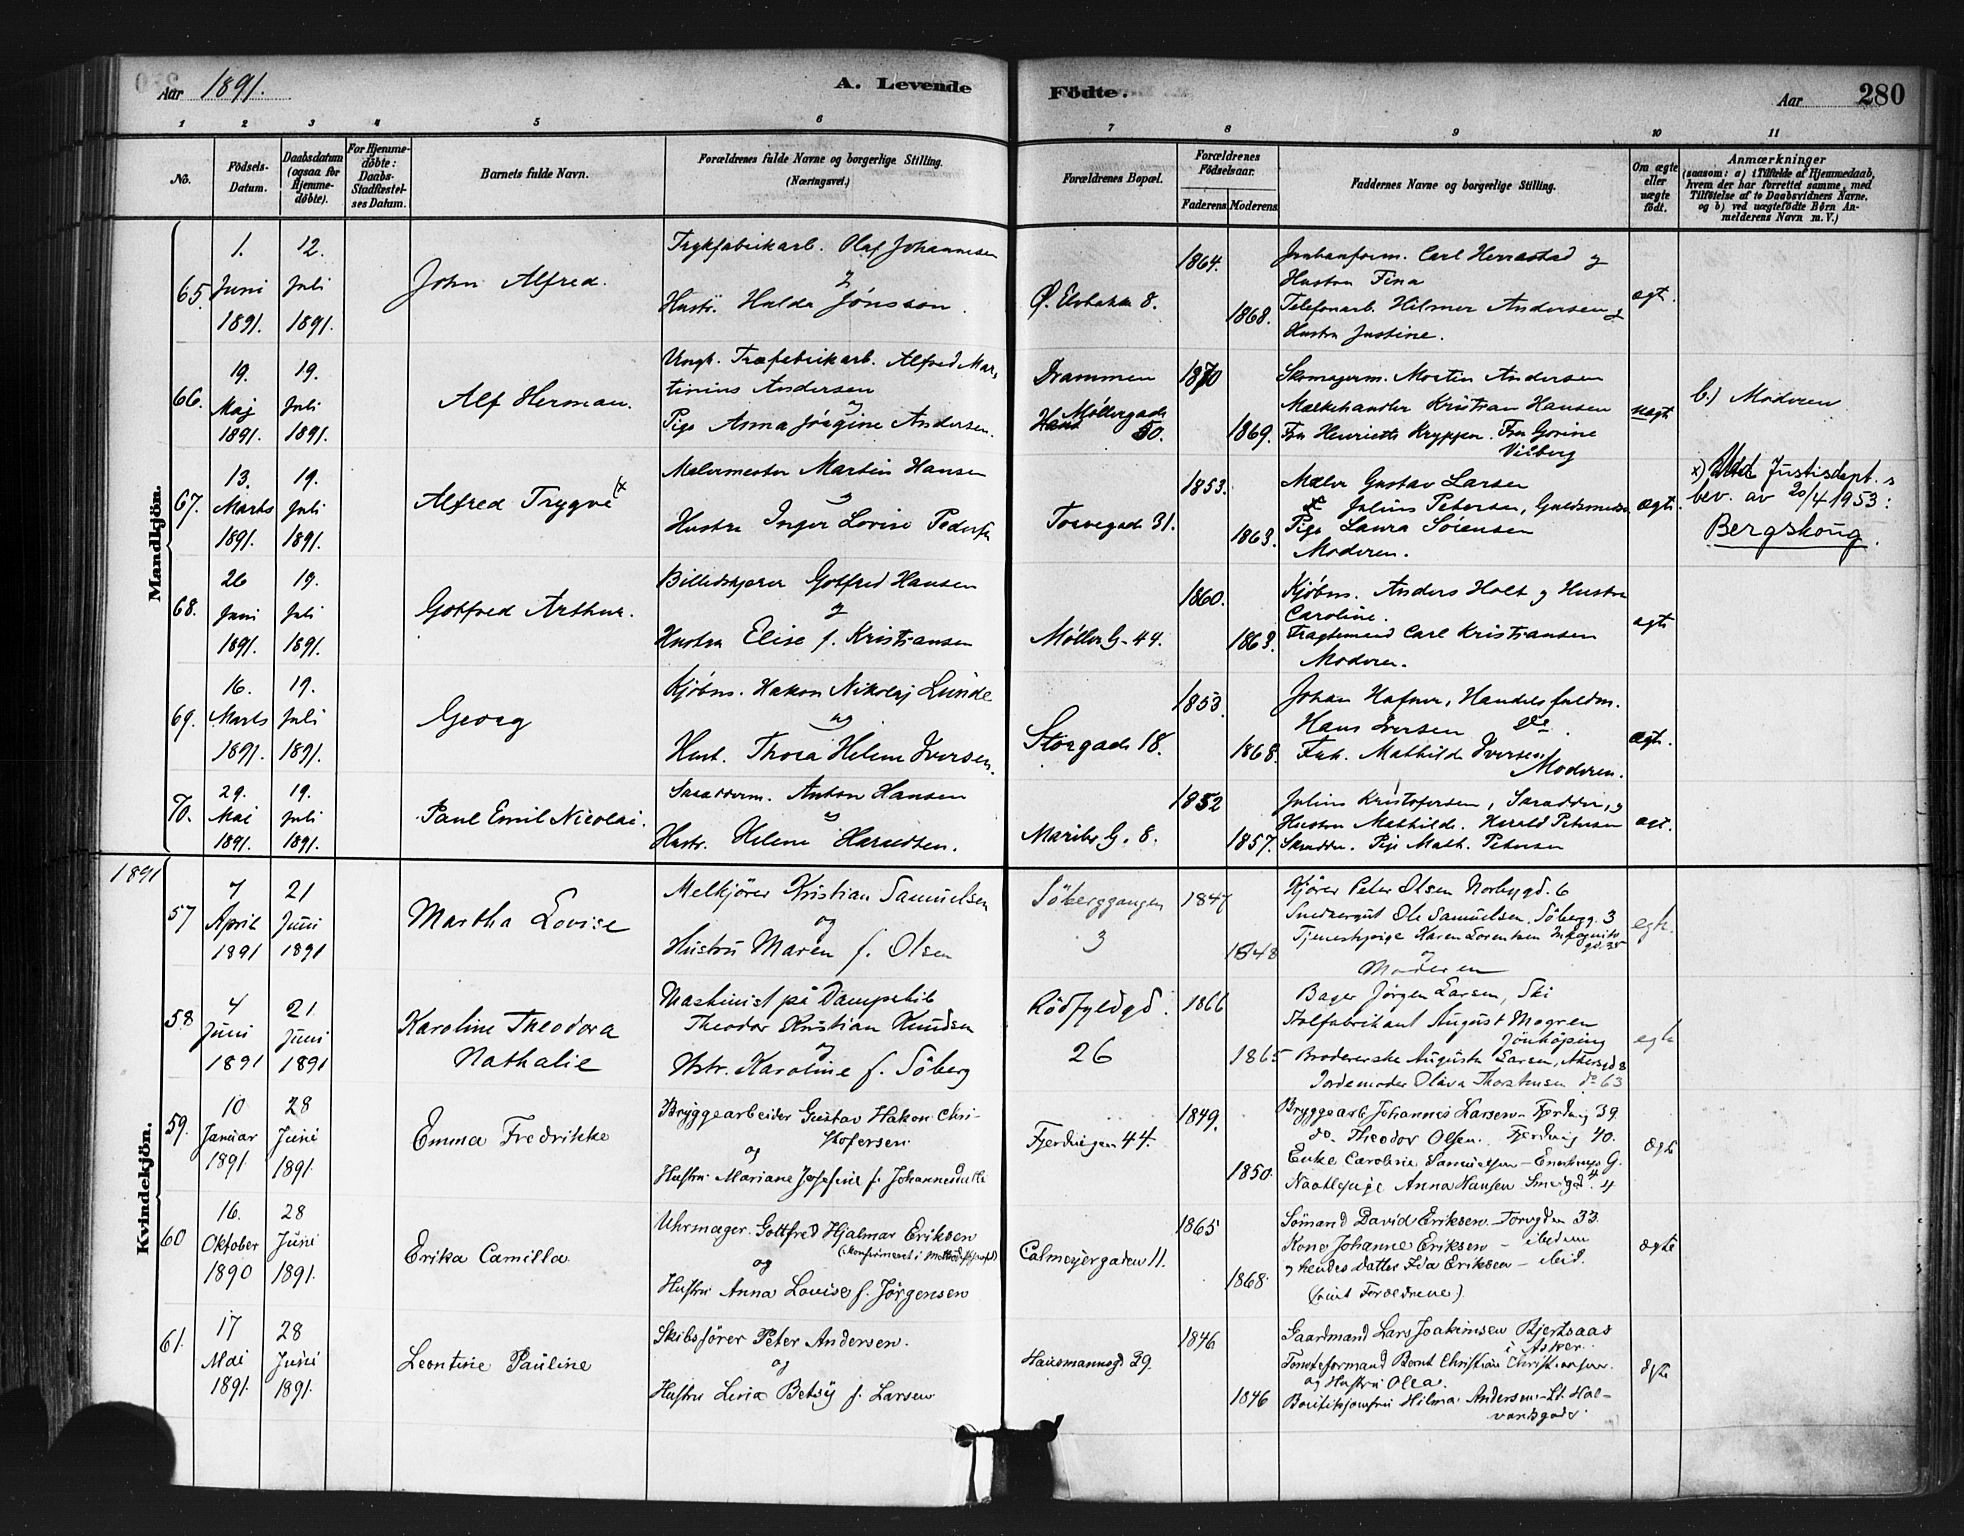 Aar 1891.
A. Levende
Födte.
Aar
280
1 2 3 4 5 6 7 8 9 10 11
No.
Födsels-
Datum.
Daabsdatum
(ogsaa for
Hjemme-
döbte).
For Hjemme-
döbte:
Daabs-
Stadfæstel-
ses Datum.
Barnets fulde Navn.
Forældrenes fulde Navne og borgerlige Stilling.
(Næringsvei.)
Forældrenes Bopæl.
Forældrenes
Födselsaar.
Faderens.
Moderens.
Faddernes Navne og borgerlige Stilling.
Om ægte
eller
uægte
födt.
Anmærkninger
(saasom: a) i Tilfælde af Hjemmedaab,
hvem der har forrettet samme, med
Tilföielse af to Daabsvidners Navne,
og b) ved uægtefödte Börn An-
melderens Navn m. V.)
Mandkjön.
65.
1.
Juni
1891.
12.
Juli
1891.
John Alfred.
Trykfabrikarb. Olaf Johannesen
og
Hustr. Hulda Jönsson.
Ø. Elvbakke 8.
1864.
1868.
Carl Herrestad og
Hustru Fina
Telefonarb. Hilmer Andersen og
Hustru Justine.
ægt.
66.
19.
Maj
1891.
19.
Juli
1891.
Alf Herman.
Ungk. Træfabrikarb. Alfred Mar-
tinius Andersen
og
Pige Anna Jörgine Andersen.
Drammen
Møllergade
50.
1870
1869.
Skomagerm. Martin Andersen
Melkehandler Kristian Hansen
Fru Henriette Fru Gorine
Vilberg
uægte
b.) Moderen
67.
13.
Marts
1891.
19.
Juli
1891.
Alfred Trygve x)
Malermester Martin Hansen
og
Hustru Inger Lovise Pedersen
Torvegade 31.
1853.
1863.
Maler Gustav Larsen
Julius Petersen, Guldsmed
Pige Laura Sörensen
Moderen.
ægte.
x) Ved Justisdept.s
bev. av 20/4 1953:
Bergskoug.
68.
26
Juni
1891.
19.
Juli
1891.
Gotfred Arthur.
Billedskjærer Gotfred Hansen
og
Hustru Elise f. Kristiansen
Møller G. 44.
1860.
1863.
Kjøbm. Anders Holt og Hustru
Caroline.
Carl Kristiansen
Moderen.
ægte
69.
16.
Marts
1891.
19.
Juli
1891.
Georg
Kjöbm. Hakon Nikolaj Lunde
og
Hust. Thora Helene Iversen.
Storgade 18.
1853.
1868.
Johan Hafner, Handelsfuldm.
Hans Iversen do.
Frk. Mathilde Iversen
Moderen.
ægt.
70.
29.
Mai
1891.
19.
Juli
1891.
Paul Emil Nicolai.
Skrædderm. Anton Hansen
og
Hustr. Helene Haraldsen.
Maribo G. 8.
1852
1857.
Julius Kristofersen, Skrædder, og
Hustru Mathilde. Harald Petersen
Skrædder. Pige Math. Petersen
ægt.
1891
Kvindekjön.
57
7
April
1891
21
Juni
1891
Martha Lovise
Melkjörer Kristian Samuelsen
og
Hustru Maren f. Olsen
Söberggangen
3
1847
1848
Kjörer Peter Olsen Norbygd. 6
Snedkergut Ole Samuelsen, Söbergg. 3
Tjenestepige Karen Lorentsen Inkognito
gd. 35
og
Moderen
egte.
58
4
Juni
1891
21
Juni
1891
Karoline Theodora
Nathalie
Maskinist på Dampskib
Theodor Kristian Knudsen
og
Hstr. Karoline f. Söberg
Rödfyldgd.
26
1866
1865
Bager Jörgen Larsen, Ski
August Mogren
Jönköping
Brodererske Augusta Larsen, Akersgd 8
Jordemoder Olava Thorstensen do 63
egte
59.
10
Januar
1891.
28
Juni
1891.
Emma Fredrikke
Bryggearbeider Gustav Hakon Chri-
stofersen
og
Hustru Mariane Josefine f. Johannesdatter
Fjerdingen 44.
1849.
1850.
Bryggearb. Johannes Larsen - Fjerding 39.
do. Theodor Olsen. Fjerding 40.
Enke Caroline Samuelsen - Enerhaug G.
Anna Hansen - Smedgd. 4
ægte
60
16.
Oktober
1890
28
Juni
1891.
Erika Camilla
Uhrmager. Gottfred Hjalmar Eriksen
og
Hustru Anna Louise f. Jörgensen
Calmeyergaden 11.
1865
1868.
Sömand David Eriksen - Torvgden 33.
Kone Johanne Eriksen - ibidem
og hendes Datter Ida Eriksen - ibid.
(samt Forældrene)
ægte
61.
17
Mai
1891.
28
Juni
1891.
Leontine Pauline
Skibsförer Peter Andersen.
og
Hustru Lina Betsy f. Larsen
Hausmannsgd 39.
1846
1846
Gaardmand Lars Joakimsen Bjertsaas
i Asker.
Tomteformand Bernt Christian Christiansen
og Hustru Olea.
Butiksjomfru Hilma Andersen - St. Hal-
vardsgade.
ægte